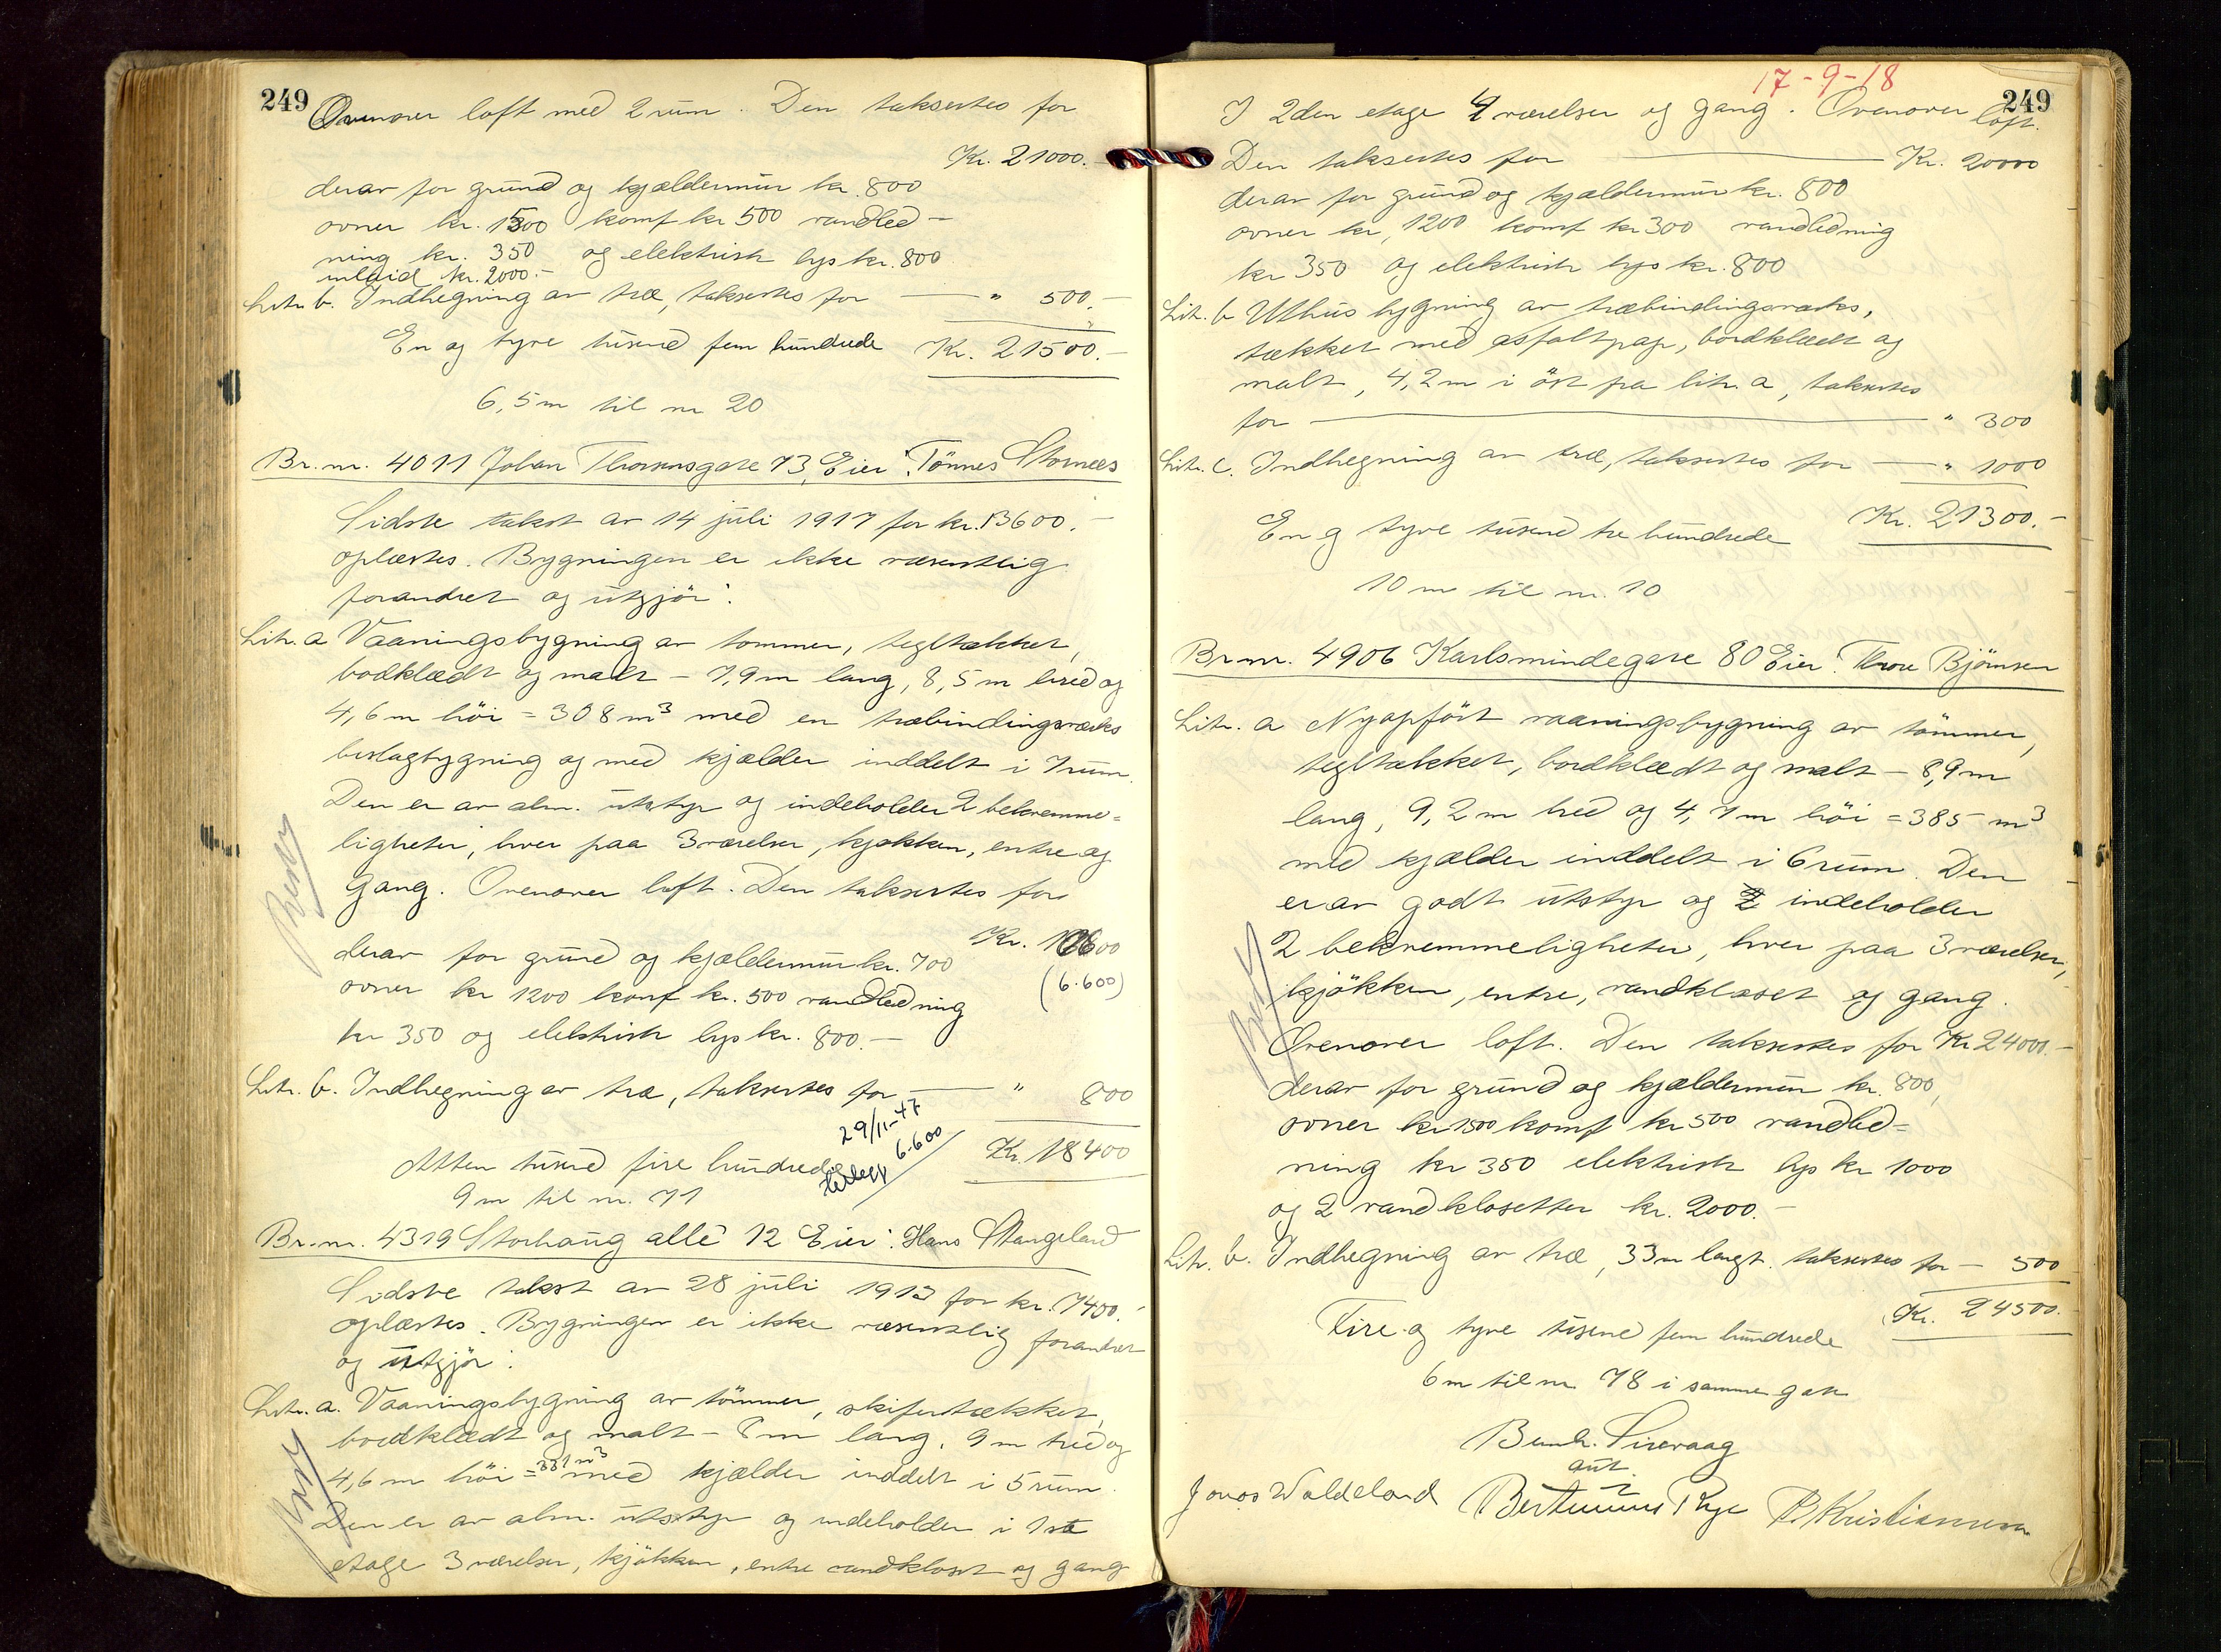 249
Ovenover loft med 2 rum. Den taksertes for
Kr. 21000.-
derav for grund og kjældermur kr. 800
ovner kr. 1500 komf kr 500 vandled-
ning kr. 350 og elektrisk lys kr. 800
innlaid kr. 2000.-
Litr. b. Indhegning av træ, taksertes for — " 500.-
En og tyve tusind fem hundrede Kr. 21500.-
6,5m til nr 20
Br.nr. 4011 Johan Thorsensgate 73, Eier: Tönnes Stornes
Sidste takst av 14 juli 1917 for kr. 13600.-
oplæstes. Bygningen er ikke væsentlig
forandret og utgjör:
Litr. a Vaaningsbygning av tømmer, tegltækket,
bordklædt og malt - 7,9m lang, 8,5m bred og
4,6m höi = 308m³ med en træbindingsverks
beslagbygning og med kjælder inddelt i 7 rum.
Den er av alm. utstyr og indeholder 2 bekvemme-
ligheter, hver paa 3 værelser, kjøkken, entre og
gang. Ovenover loft. Den taksertes for
Kr. 17600
derav for grund og kjældermur kr. 700
(6.600)
ovner kr 1200 komf kr. 500 vandledning
kr 350 og elektrisk lys kr. 800.-
Litr. b. Indhegning av træ, taksertes for — " 800
29/11-47
6.600
Kr. 18400
Atten tusind fire hundrede
9m til nr. 71
Br.nr. 4319 Storhaug allé 12 Eier: Hans Stangeland
Sidste takst av 28 juli 1913 for kr. 7400.-
oplæstes. Bygningen er ikke væsentlig forandret
og utgjör:
Litr. a. Vaaningsbygning av tömmer, skifertækket,
bordklædt og malt - 8m lang, 9m bred og
4,6m höi = 331m³ med kjælder inddelt i 5 rum.
Den er av alm. utstyr og indeholder i 1ste
etage 3 værelser, kjökken, entre vandkloset og gang
17-9-18
249
I 2den etage 4 værelser og gang. Ovenover loft.
Den taksertes for — Kr. 20000
derav for grund og kjældermur kr. 800
ovner kr, 1200 komf kr 300 vandledning
kr 350 og elektrisk lys kr. 800
Litr. b Uthus bygning av træbindingsverks,
tækket med asfaltpap, bordklædt og
malt, 4,2m i öst fra litr. a, taksertes
for — " 300
Litr. c. Indhegning av træ, taksertes for — " 1000
En og tyve tusind tre hundrede Kr. 21300.-
10m til nr. 10
Br.nr. 4906 Karlsmindegate 80 Eier: Thore Björnsen
Litr. a Nyopfört vaaningsbygning av tömmer,
tegltækket, bordklædt og malt - 8,9m
lang, 9,2m bred og 4,7m höi = 385 m³
med kjælder inddelt i 6 rum. Den
er av godt utstyr og indeholder
2 bekvemmeligheter, hver paa 3 værelser,
kjökken, entre, vandkloset og gang.
Ovenover loft. Den taksertes for Kr 24000.-
derav for grund og kjældermur kr. 800,
ovner kr 1500 komf kr 500 vandled=
ning kr 350 elektrisk lys kr 1000
og 2 vandklosetter kr. 2000.-
Litr. b. Indhegning av træ, 33m langt. taksertes for - 500
Kr. 24500.-
Fire og tyve tusind fem hundrede
6m til nr 78 i samme gate
Bernh. Sirevaag
aut.
Jonas Waldeland Bertinius Rege B Kristiansen